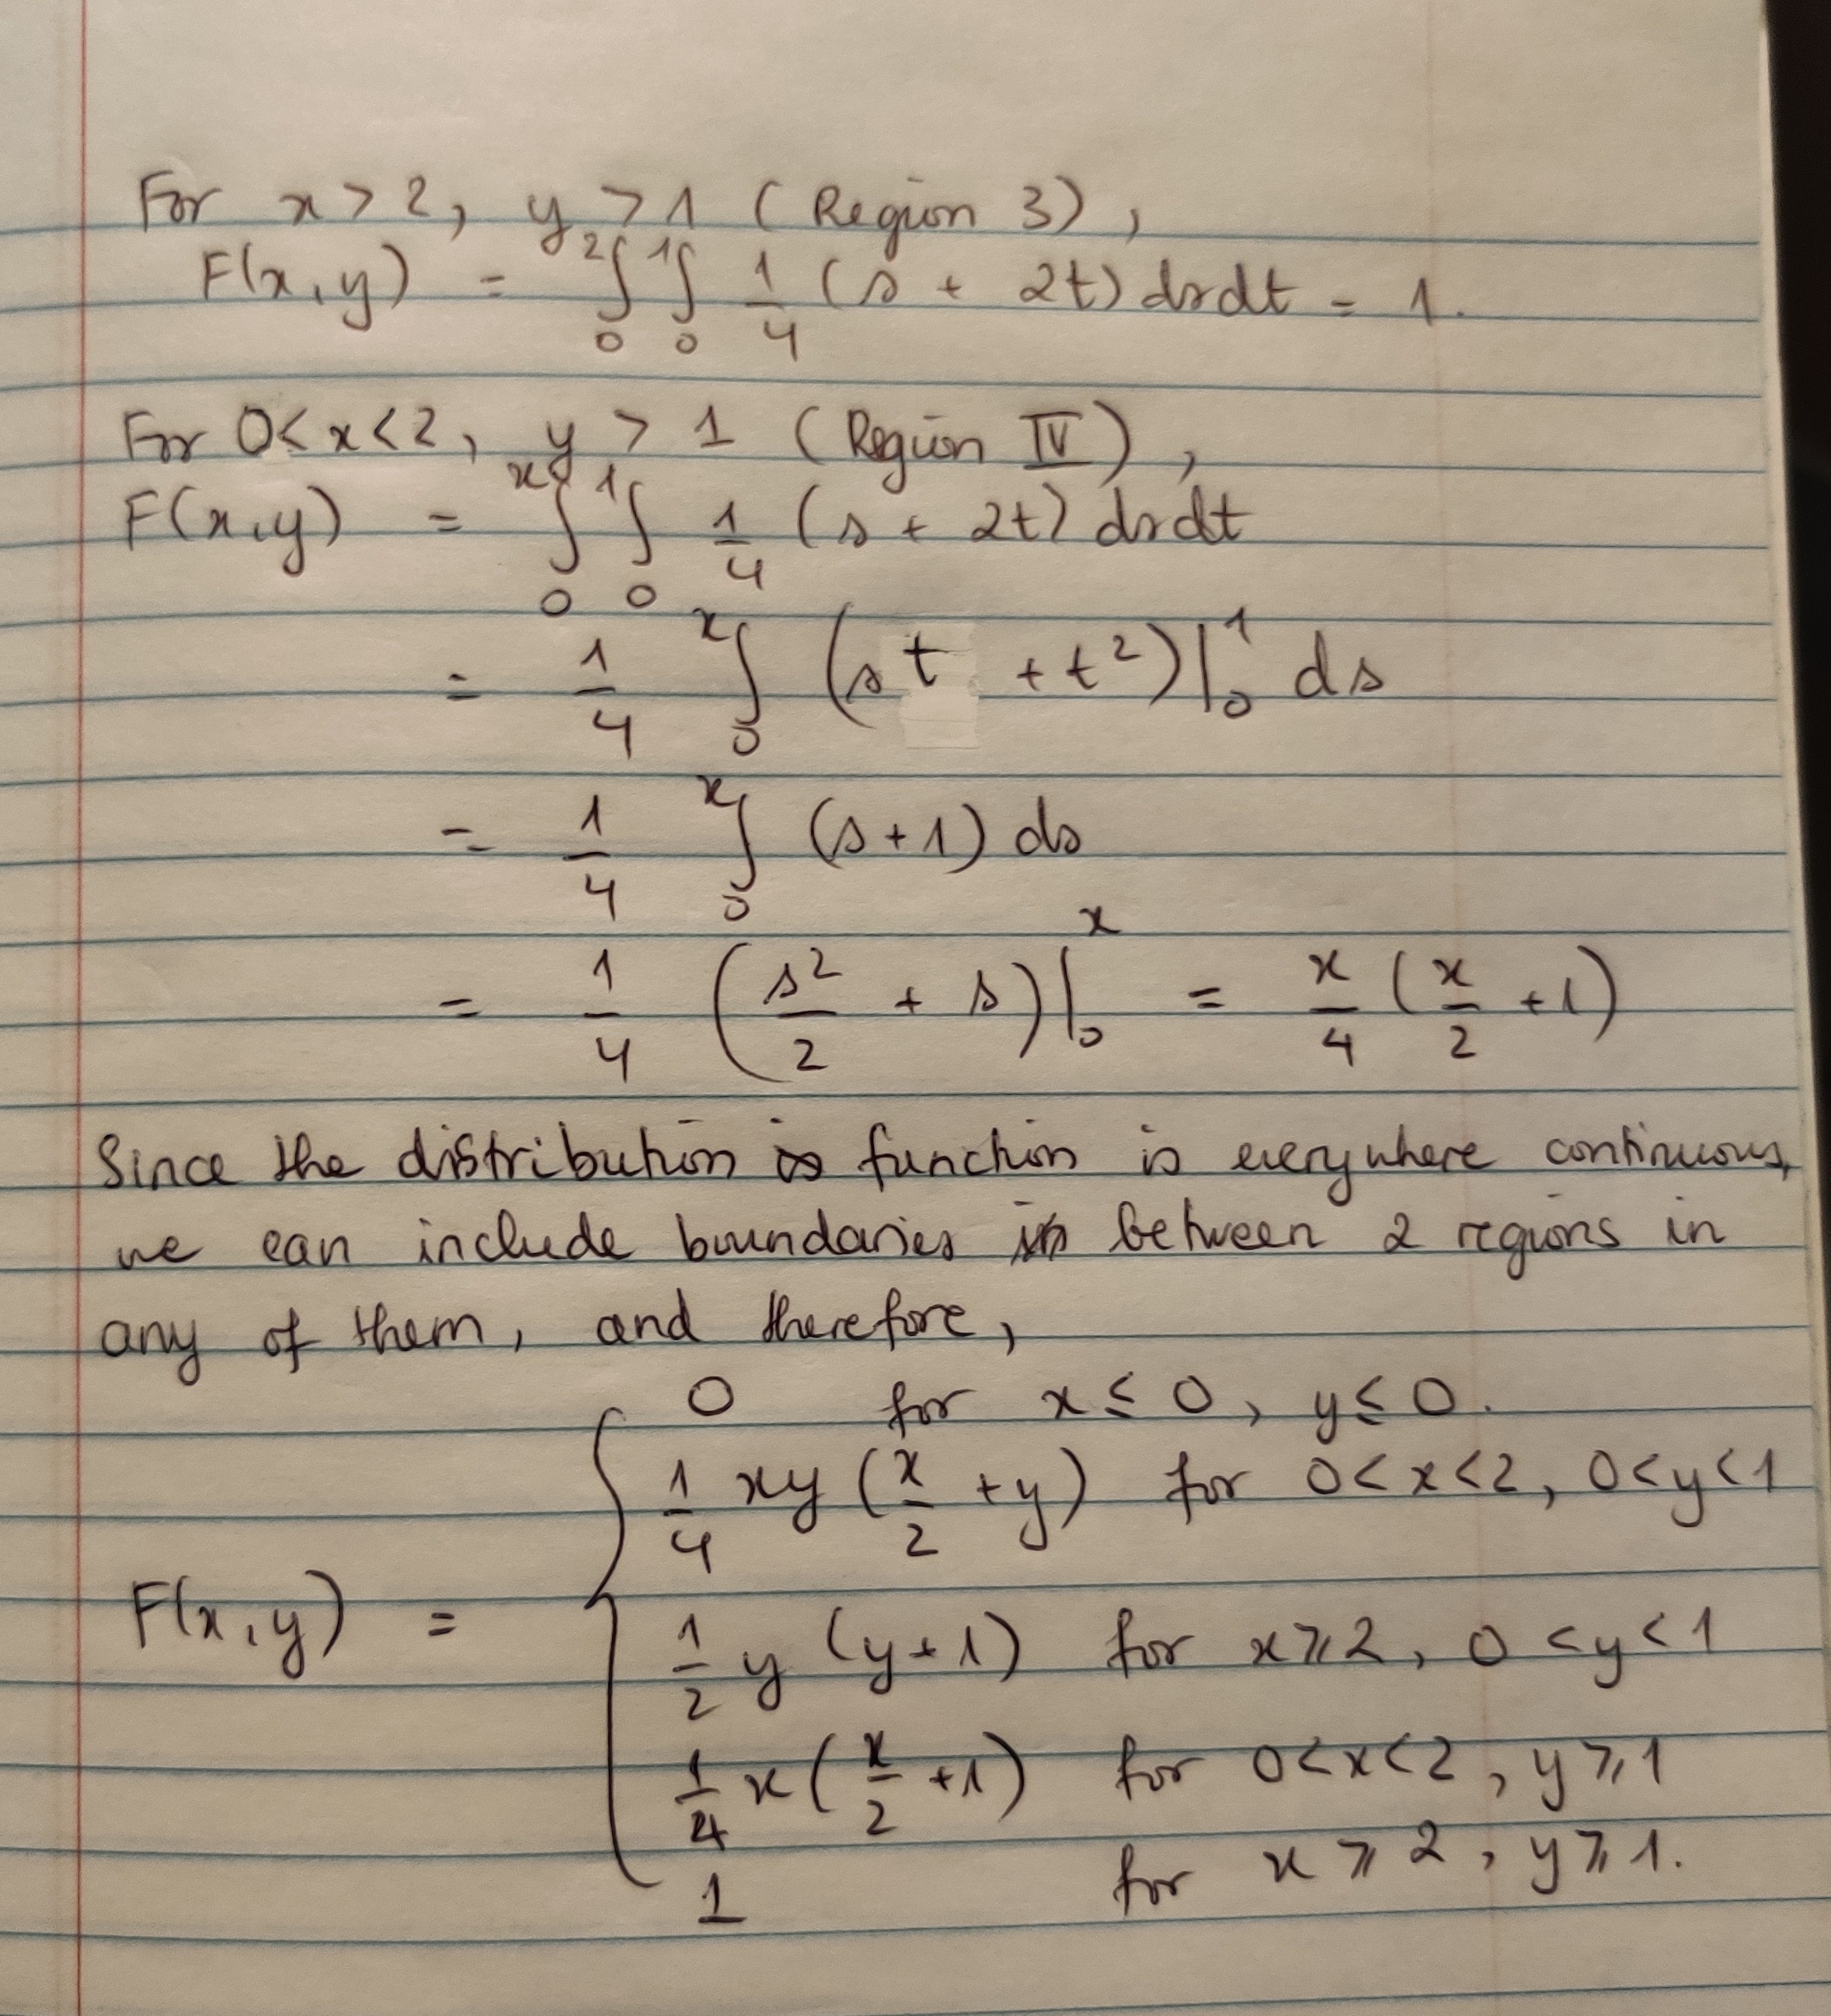 For x > 2, y > 1 (Region 3),
F(x,y) = ∫₀² ∫₀¹ 1/4 (s + 2t) dsdt = 1.
For 0 < x < 2, y > 1 (Region IV),
F(x,y) = ∫₀ˣ ∫₀¹ 1/4 (s + 2t) dsdt
= 1/4 ∫₀ˣ (st + t²)|₀¹ ds
= 1/4 ∫₀ˣ (s+1) ds
= 1/4 (s²/2 + s)|₀ˣ = x/4 (x/2 + 1)
Since the distribution function is everywhere continuous,
we can include boundaries between 2 regions in
any of them, and therefore,
0 for x ≤ 0, y ≤ 0.
1/4 xy (x/2 + y) for 0 < x < 2, 0 < y < 1
F(x,y) = {
1/2 y (y+1) for x ⩾ 2, 0 < y < 1
1/4 x (x/2 + 1) for 0 < x < 2, y ⩾ 1
1 for x ⩾ 2, y ⩾ 1.